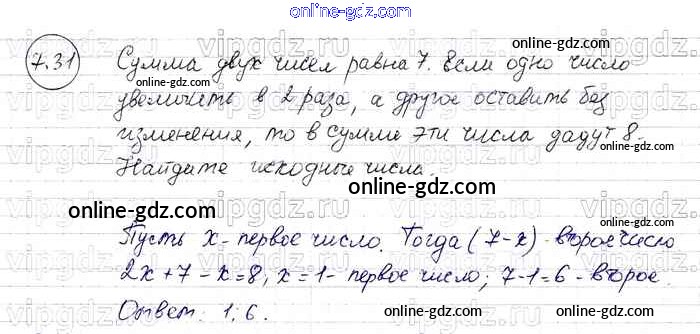 online-gdz.com
7.31
Сумма двух чисел равна 7. Если одно число
online-gdz.com
увеличить в 2 раза, а другое оставить без
изменения, то в сумме эти числа дадут 8.
Найдите исходные числа.
online-gdz.com
Пусть x - первое число. Тогда (7-x) - второе число
2x + 7 - x = 8, x = 1 - первое число; 7-1=6 - второе.
Ответ: 1; 6.
online-gdz.com
online-gdz.com
online-gdz.com
online-gdz.com
online-gdz.com
vipgdz
vipgdz
vipgdz